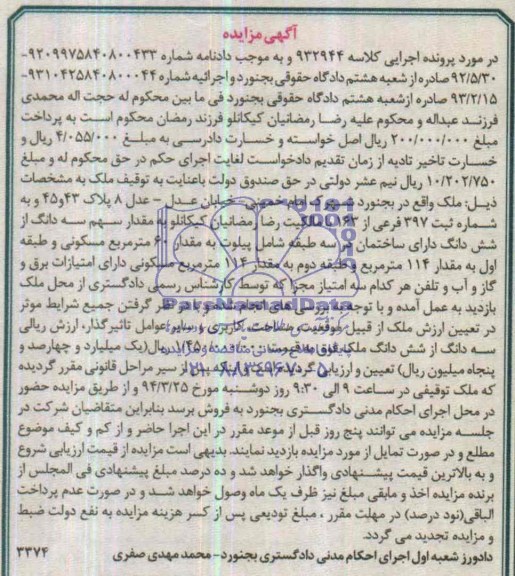 آگهی مزایده
در مورد پرونده اجرایی کلاسه ۹۳۲۹۴۴ و به موجب دادنامه شماره ۹۲۰۹۹۷۵۸۴۰۸۰۰۴۳۳-
۹۲/۵/۳۰ صادره از شعبه هشتم دادگاه حقوقی بجنورد و اجرائیه شماره ۹۳۱۰۴۲۵۸۴۰۸۰۰۰۴۴-
۹۳/۲/۱۵ صادره ازشعبه هشتم دادگاه حقوقی بجنورد فی ما بین محکوم له حجت اله محمدی
فرزند عبداله و محکوم علیه رضا رمضانیان کیکانلو فرزند رمضان محکوم است به پرداخت
مبلغ ۲۰۰/۰۰۰/۰۰۰ ریال اصل خواسته و خسارت دادرسی به مبلغ ۴/۰۵۵/۰۰۰ ریال و
خسارت تاخیر تادیه از زمان تقدیم دادخواست لغایت اجرای حکم در حق محکوم له و مبلغ
۱۰/۲۰۲/۷۵۰ ریال نیم عشر دولتی در حق صندوق دولت باعنایت به توقیف ملک به مشخصات
ذیل: ملک واقع در بجنورد شهرک امام خمینی خیابان عدل – عدل ۸ پلاک ۴۳و۴۵ و به
شماره ثبت ۳۹۷ فرعی از ۱۶۳ مالکیت رضا رمضانیان کیکانلو مقدار سهم سه دانگ از
شش دانگ دارای ساختمان در سه طبقه شامل پیلوت به مقدار ۶۰ مترمربع مسکونی و طبقه
اول به مقدار ۱۱۴ مترمربع و طبقه دوم به مقدار ۱۱۴ مترمربع مسکونی دارای امتیازات برق و
گاز و آب و تلفن هر کدام سه امتیاز مجزا که توسط کارشناس رسمی دادگستری از محل ملک
بازدید به عمل آمده و با توجه به بررسی های انجام شده و با در نظر گرفتن جمیع شرایط موثر
در تعیین ارزش ملک از قبیل موقعیت، مساحت، کاربری و سایر عوامل تاثیرگذار، ارزش ریالی
سه دانگ از شش دانگ ملک فوق به قیمت ریال(یک میلیارد و چهارصد و
پنجاه میلیون ریال) تعیین و ارزیابی گردیده از سیر مراحل قانونی مقرر گردیده
که ملک توقیفی در ساعت ۹ الی ۹:۳۰ روز دوشنبه مورخ ۹۴/۳/۲۵ و از طریق مزایده حضور
در محل اجرای احکام مدنی دادگستری بجنورد به فروش برسد بنابراین متقاضیان شرکت در
جلسه مزایده می توانند پنج روز قبل از موعد مقرر در این اجرا حاضر و از کم و کیف موضوع
مطلع و در صورت تمایل از مورد مزایده بازدید نمایند. بدیهی است مزایده از قیمت ارزیابی شروع
و به بالاترین قیمت پیشنهادی واگذار خواهد شد و ده درصد مبلغ پیشنهادی فی المجلس از
برنده مزایده اخذ و مابقی مبلغ نیز ظرف یک ماه وصول خواهد شد و در صورت عدم پرداخت
الباقی(نود درصد) در مهلت مقرر ، مبلغ تودیعی پس از کسر هزینه مزایده به نفع دولت ضبط
و مزایده تجدید می گردد.
دادورز شعبه اول اجرای احکام مدنی دادگستری بجنورد- محمد مهدی صفری ۳۳۷۴
ParsNamadData
۰۲۱-۸۸۳۴۹۶۷۰-۵